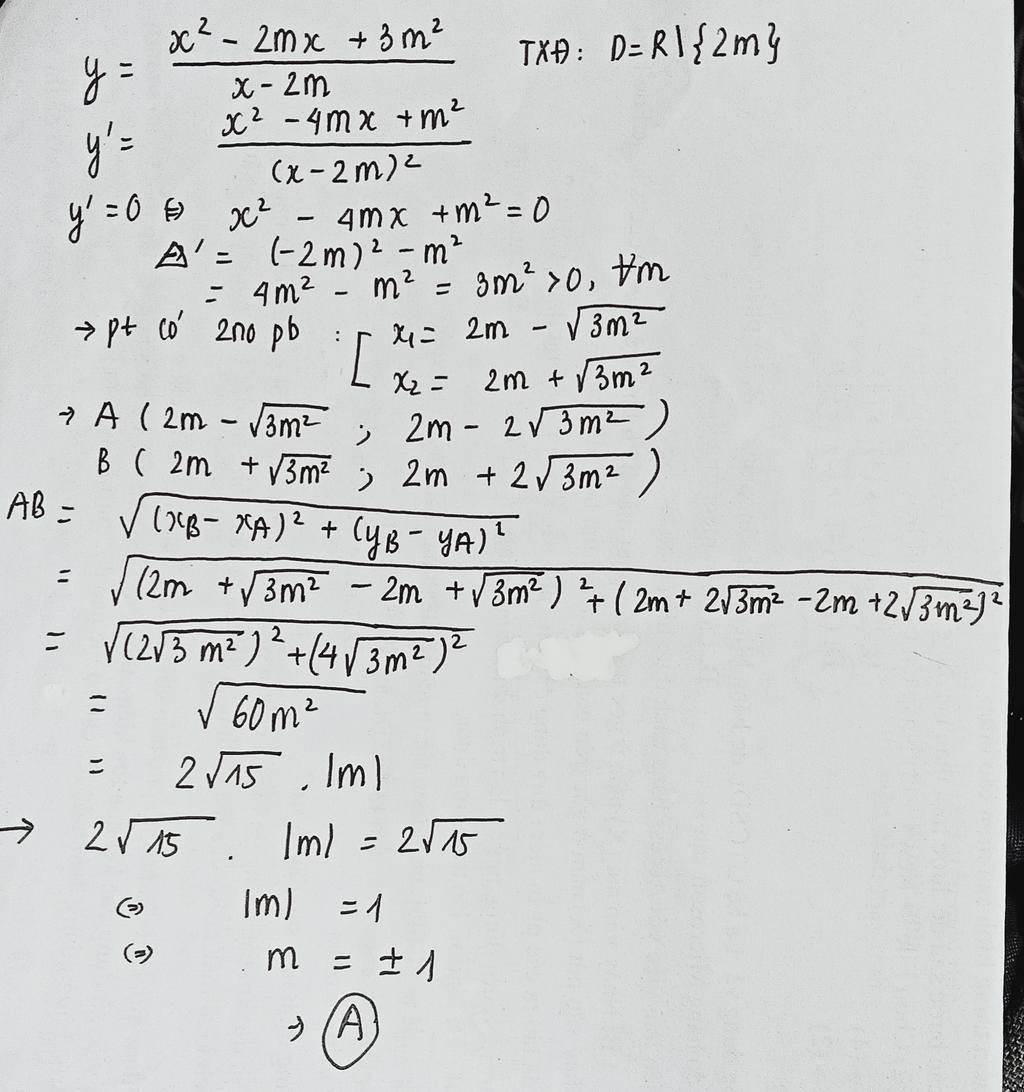 y = (x² - 2mx + 3m²)/(x - 2m) TXĐ: D = R\{2m}
y' = (x² - 4mx + m²)/(x - 2m)²
y' = 0 ⇔ x² - 4mx + m² = 0
Δ' = (-2m)² - m²
= 4m² - m² = 3m² > 0, ∀m
→ pt có 2no pb : [ x₁ = 2m - √3m²
x₂ = 2m + √3m²
→ A ( 2m - √3m² ; 2m - 2√3m² )
B ( 2m + √3m² ; 2m + 2√3m² )
AB = √(x_B - x_A)² + (y_B - y_A)²
= √(2m + √3m² - 2m + √3m²)² + (2m + 2√3m² - 2m + 2√3m²)²
= √(2√3m²)² + (4√3m²)²
= √60m²
= 2√15 . |m|
→ 2√15 . |m| = 2√15
⇔ |m| = 1
⇔ m = ± 1
→ A